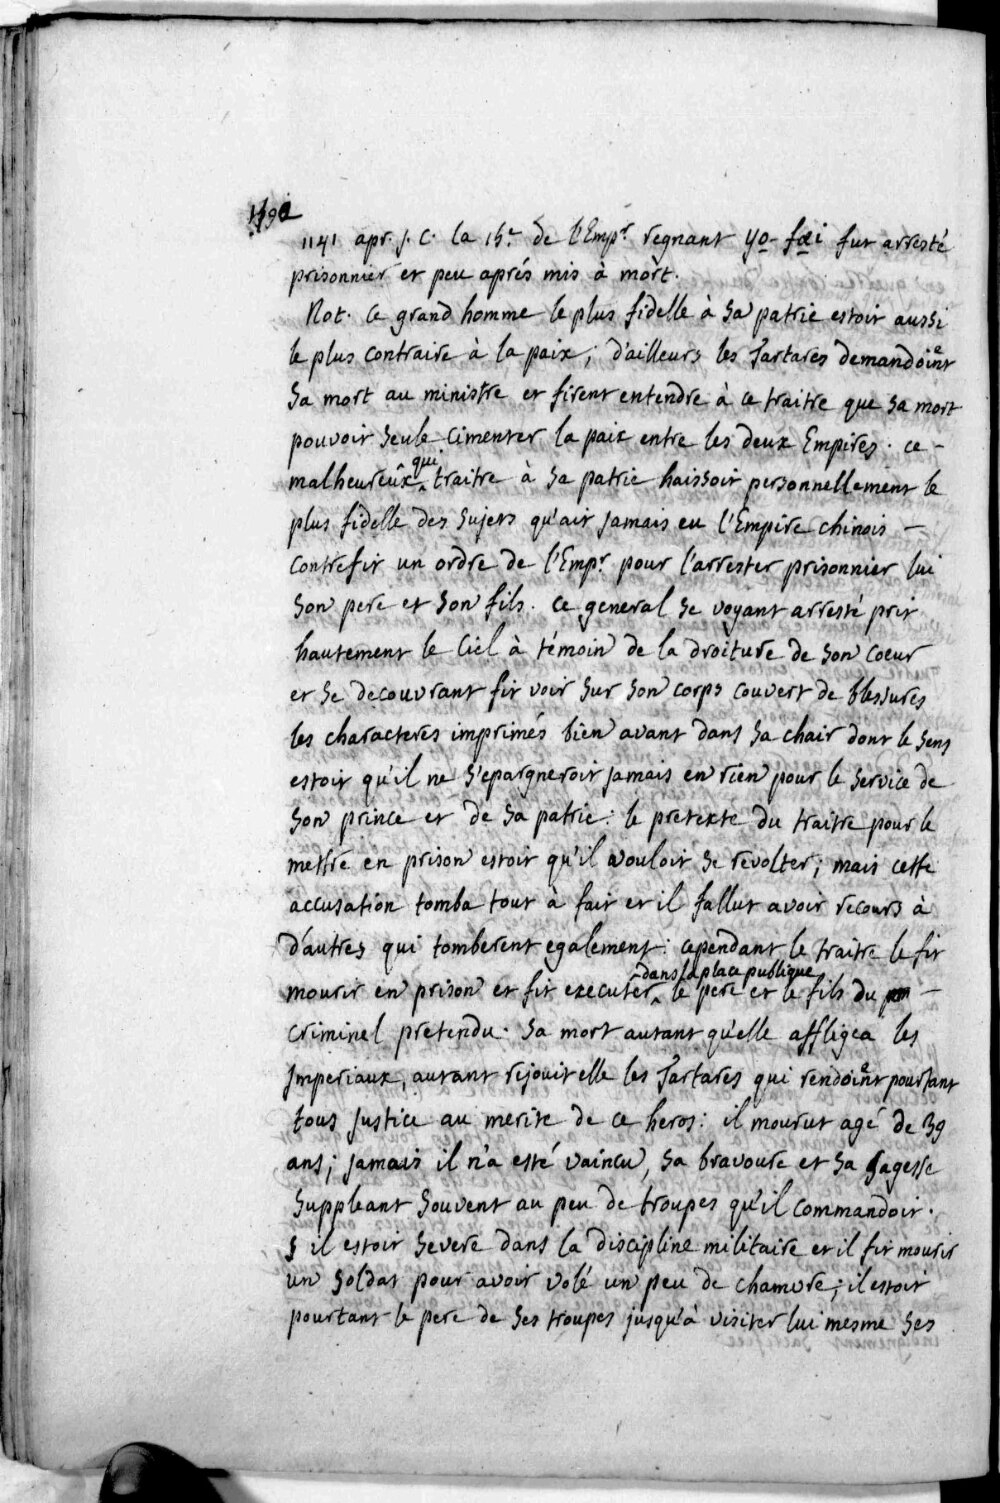 1141 apr. J. C. la 15.e de l'Emp.r regnant yo-fœi fut arresté
prisonnier et peu aprés mis à mort.
Not. ce grand homme le plus fidelle à sa patrie estoit aussi
le plus contraire à la paix; d'ailleurs les Tartares demandoient
sa mort au ministre et firent entendre à ce traitre que sa mort
pouvoit seule cimenter la paix entre les deux Empires. ce -
malheureux qui traitre à sa patrie haissoit personnellement le
plus fidelle des sujets qu'ait jamais eu l'Empire chinois -
contrefit un ordre de l'Emp.r pour l'arrester prisonnier lui
son pere et son fils. ce general se voyant arresté prit
hautement le Ciel à témoin de la droiture de son coeur
et se decouvrant fit voir sur son corps couvert de blessures
les characteres imprimés bien avant dans sa chair dont le sens
estoit qu'il ne s'epargneroit jamais en rien pour le service de
son prince et de sa patrie: le pretexte du traitre pour le
mettre en prison estoit qu'il vouloit se revolter; mais cette
accusation tomba tout à fait et il fallut avoir recours à
d'autres qui tomberent egalement: cependant le traitre le fit
mourir en prison et fit executer dans la place publique le pere et le fils du -
criminel pretendu. sa mort autant qu'elle affligea les
Imperiaux, autant rejouit elle les Tartares qui rendoient pourtant
tous justice au merite de ce heros: il mourut agé de 39
ans; jamais il n'a esté vaincu, sa bravoure et sa sagesse
suppleant souvent au peu de troupes qu'il commandoit.
s il estoit severe dans la discipline militaire et il fit mourir
un soldat pour avoir volé un peu de chamvre; il estoit
pourtant le pere de ses troupes jusqu'à visiter lui mesme ses